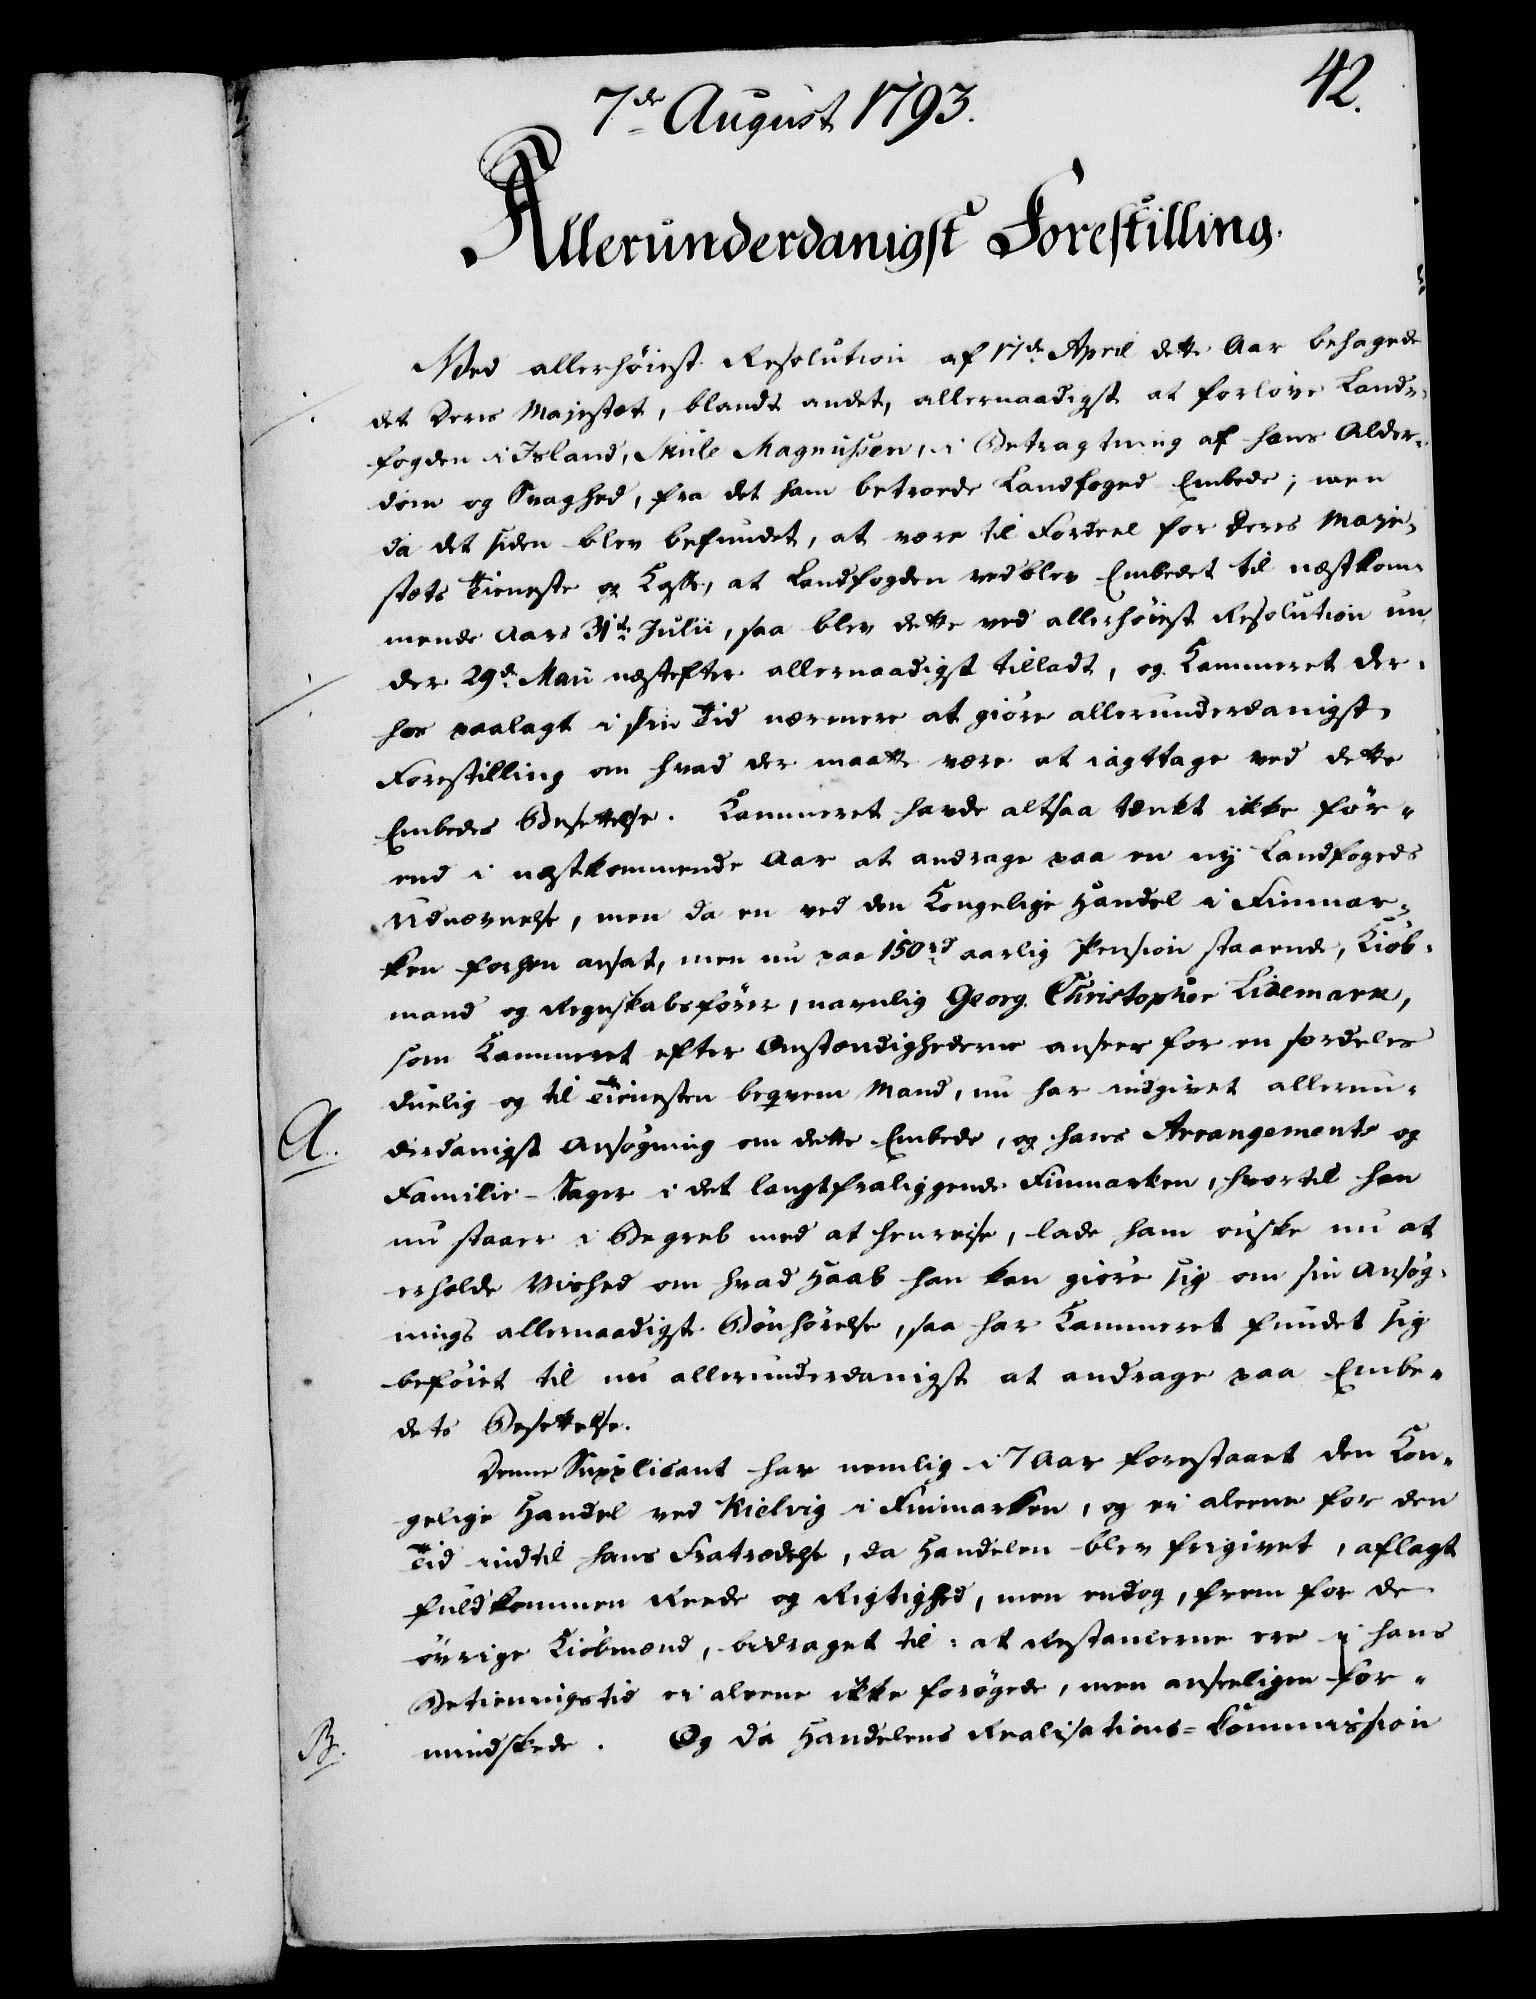 42.
7de August 1793.
Allerunderdanigst Forestilling.
Med allerhöiest Resolution af 17de April dette Aar behagede
det Deres Majestæt, blandt andet, allernaadigst at forlöve Land-
fogden i Island, Skule Magnussen, i Betragtning af hans Alder-
dom og Svaghed, fra det ham betroede Landfoged Embede; men
da det siden blev befundet, at være til Fordeel for Deres Maje-
stæts Tieneste og Casse, at Landfogden vedblev Embedet til næstkom-
mende Aars 31te Julii, saa blev dette ved allerhöiest Resolution un-
der 29de Maii næstefter allernaadigst tilladt, og Kammeret der-
hos paalagt i sin Tid nærmere at giöre allerunderdanigst
Forestilling om hvad der maatte være at iagttage ved dette
Embedes Besettelse. Kammeret havde altsaa tænkt ikke för-
end i næstkommende Aar at andrage paa en nÿ Landfogeds
Udnævnelse, men da en ved den Kongelige Handel i Finmar-
ken forhen ansat, men nu paa 150 rd aarlig Pension staaende, Kiöb-
mand og Regnskabsförer, navnlig Georg Christopher Lidemark,
som Kammeret efter Omstændighederne anseer for en særdeles
duelig og til Tienesten beqvem Mand, nu har indgivet allerun-
A.
derdanigst Ansögning om dette Embede, og hans Arrangements og
Familie-Sager i det langtfraliggende Finmarken, hvortil han
nu staaer i Begreb med at henreise, lade ham önske nu at
erholde Vished om hvad Haab han kan giöre sig om sin Ansög-
nings allernaadigste Bönhörelse, saa har Kammeret fundet sig
beföiet til nu allerunderdanigst at andrage paa Embe-
dets Besettelse.
Denne Supplicant har nemlig i 7 Aar forestaaet den Kon-
gelige Handel ved Kielvig i Finmarken, og ei aleene for den
Tid indtil hans Fratrædelse, da Handelen blev frigivet, aflagt
fuldkommen Reede og Rigtighed, men endog, frem for de
övrige Kiöbmænd, bidraget til: at Restancerne ere i hans
Betieningstid ei aleene ikke forögede, men anseeligen for-
B.
mindskede. Og da Handelens Realisations-Kommission